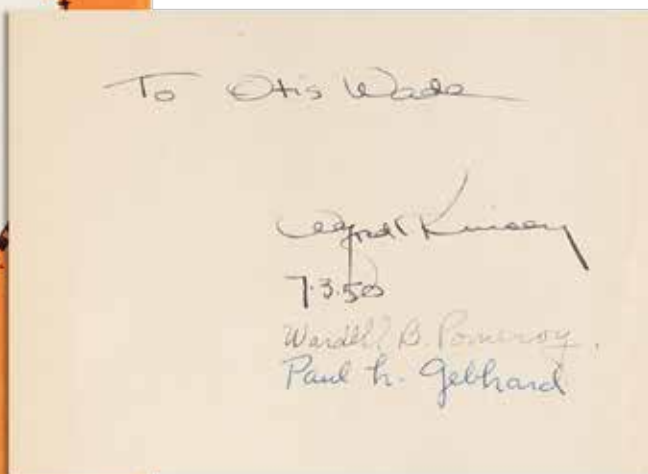 To Otis Wade
Alfred Kinsey
7.3.50
Wardell B. Pomeroy.
Paul H. Gebhard